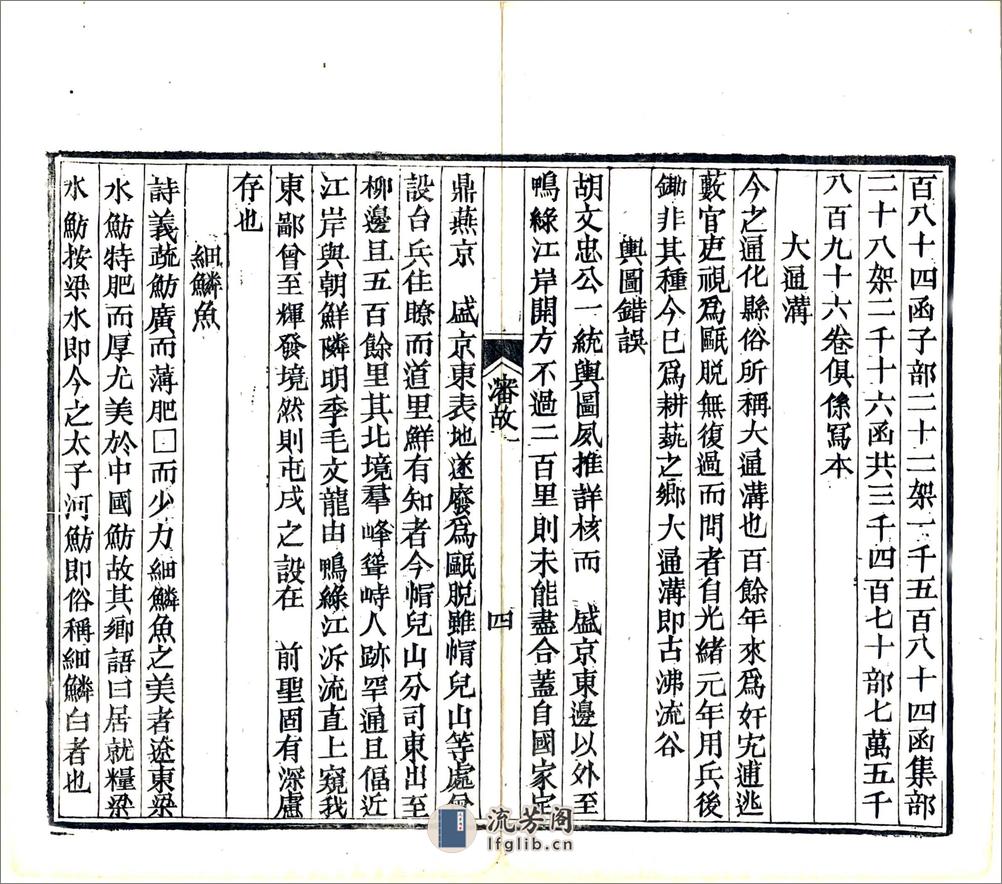 百八十四函子部二十二架一千五百八十四函集部
二十八架二千十六函共三千四百七十部七萬五千
八百九十六卷俱係寫本
大通溝
今之通化縣俗所稱大通溝也百餘年來爲奸宄逋逃
藪官吏視爲甌脫無復過而問者自光緒元年用兵後
鋤非其種今已爲耕蓺之鄉大通溝即古沸流谷
輿圖錯誤
胡文忠公一統輿圖夙推詳核而 盛京東邊以外至
鴨綠江岸開方不過二百里則未能盡合蓋自國家定
瀋故一
四
鼎燕京 盛京東表地遂廢爲甌脫雖帽兒山等處曾
設台兵佳瞭而道里鮮有知者今帽兒山分司東出至
柳邊且五百餘里其北境羣峰聳峙人跡罕通且偪近
江岸與朝鮮隣明季毛文龍由鴨綠江泝流直上窺我
東鄙曾至輝發境然則屯戍之設在 前聖固有深慮
存也
細鱗魚
詩義疏魴廣而薄肥□而少力細鱗魚之美者遼東梁
水魴特肥而厚尤美於中國魴故其鄉語曰居就糧梁
水魴按梁水即今之太子河魴即俗稱細鱗白者也
流芳阁
lfglib.cn